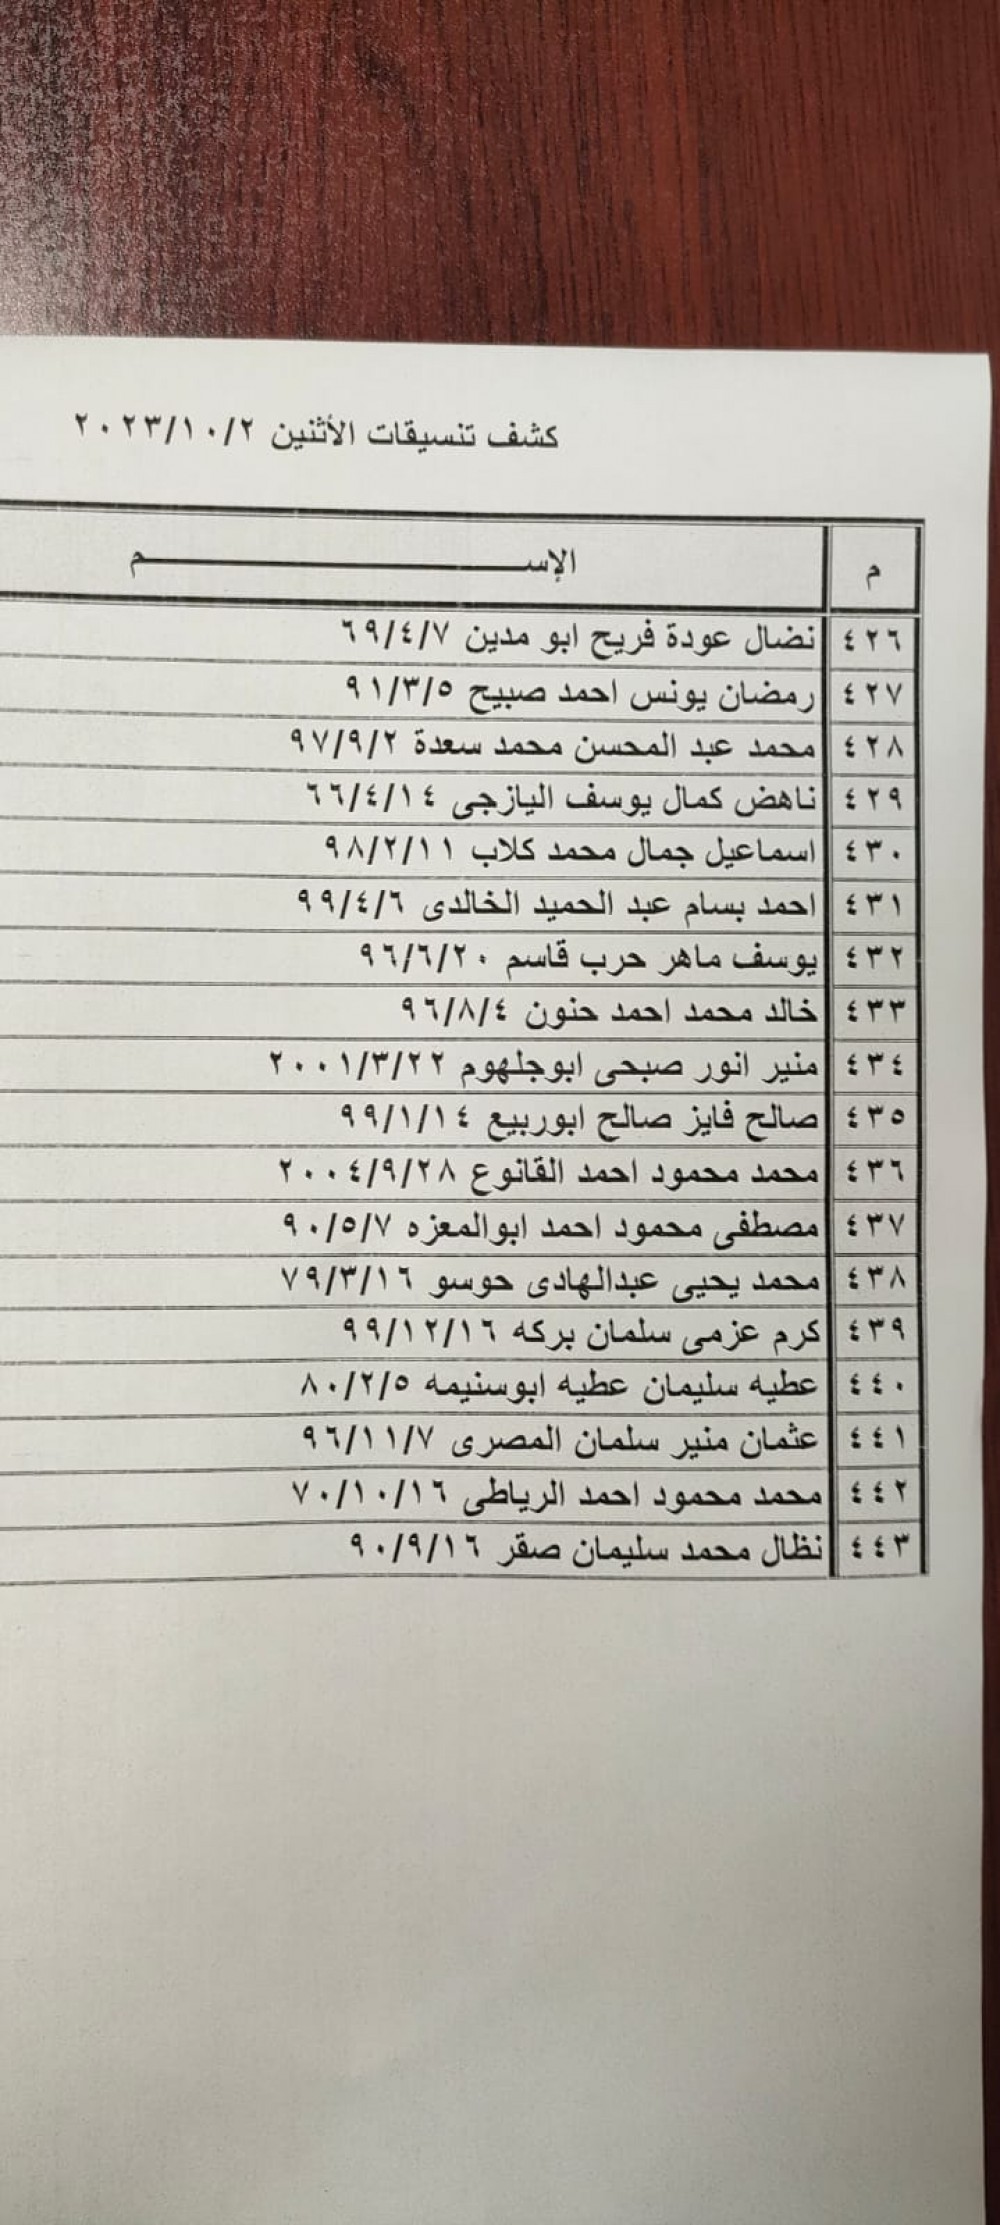 كشف تنسيقات الأثنين ٢٠٢٣/١٠/٢
م الإســـــــــــــــــــــم
٤٢٦ نضال عودة فريح ابو مدين ٦٩/٤/٧
٤٢٧ رمضان يونس احمد صبيح ٩١/٣/٥
٤٢٨ محمد عبد المحسن محمد سعدة ٩٧/٩/٢
٤٢٩ ناهض كمال يوسف اليازجى ٦٦/٤/١٤
٤٣٠ اسماعيل جمال محمد كلاب ٩٨/٢/١١
٤٣١ احمد بسام عبد الحميد الخالدى ٩٩/٤/٦
٤٣٢ يوسف ماهر حرب قاسم ٩٦/٦/٢٠
٤٣٣ خالد محمد احمد حنون ٩٦/٨/٤
٤٣٤ منير انور صبحى ابوجلهوم ٢٠٠١/٣/٢٢
٤٣٥ صالح فايز صالح ابوربيع ٩٩/١/١٤
٤٣٦ محمد محمود احمد القانوع ٢٠٠٤/٩/٢٨
٤٣٧ مصطفى محمود احمد ابوالمعزه ٩٠/٥/٧
٤٣٨ محمد يحيى عبدالهادى حوسو ٧٩/٣/١٦
٤٣٩ كرم عزمى سلمان بركه ٩٩/١٢/١٦
٤٤٠ عطيه سليمان عطيه ابوسنيمه ٨٠/٢/٥
٤٤١ عثمان منير سلمان المصرى ٩٦/١١/٧
٤٤٢ محمد محمود احمد الرياطى ٧٠/١٠/١٦
٤٤٣ نظال محمد سليمان صقر ٩٠/٩/١٦